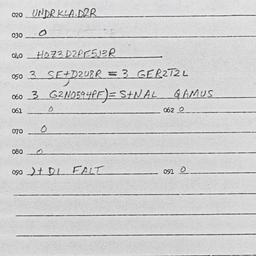 020 UNDRKLA.D2R
030 0
040 H073D2PF5J3R
050 3 SF+D2U8R = 3 GER2T2L
060 3 G2N0594PF)= S+NAL GAMUS
061 0 062 0
070 0
080 0
090 )+DI FALT 091 0